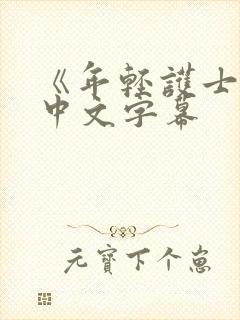 《年轻護士
中文字幕
元寶下个崽